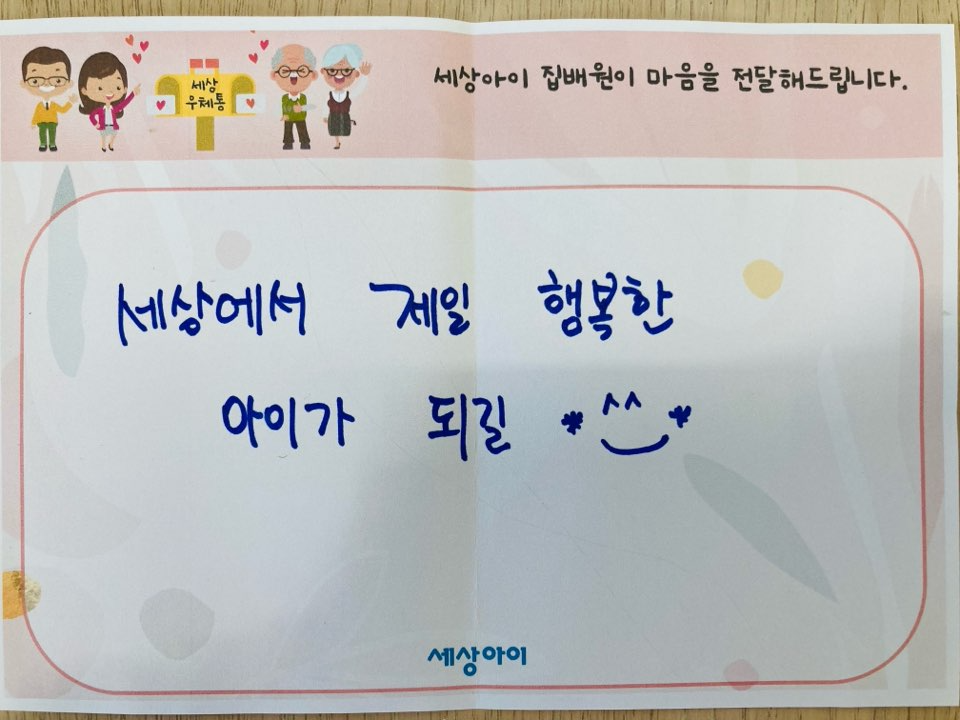 세상
우체통
세상아이 집배원이 마음을 전달해드립니다.
세상에서 제일 행복한
아이가 되길 * ^^ *
세상아이